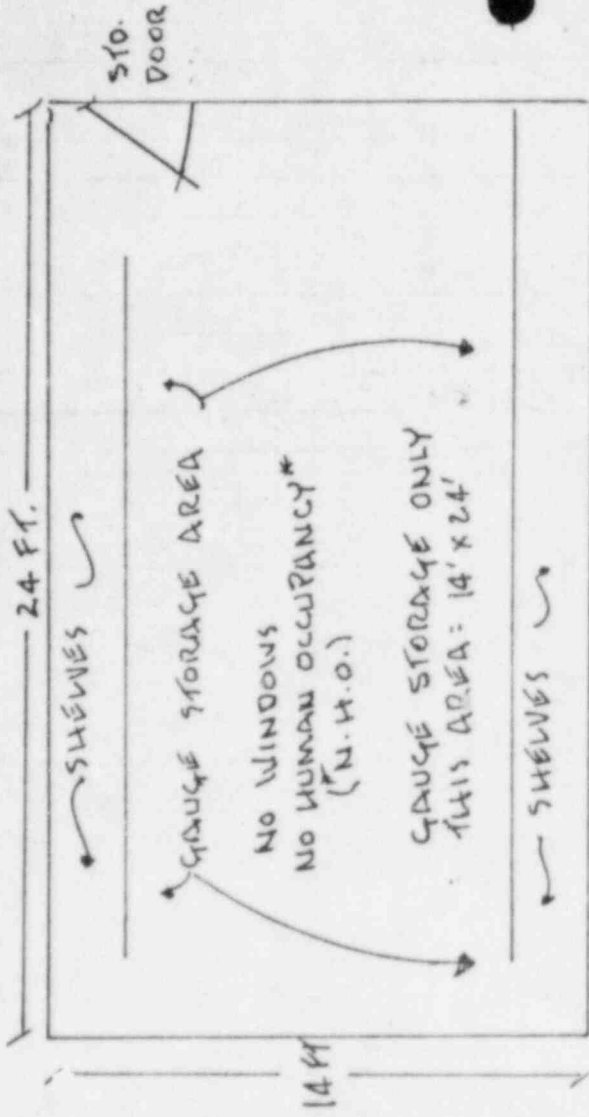 24 FT.
STD.
DOOR
SHELVES
GAUGE STORAGE AREA
NO WINDOWS
NO HUMAN OCCUPANCY*
(*N.H.O.)
GAUGE STORAGE ONLY
THIS AREA: 14' x 24'
SHELVES
14 FT